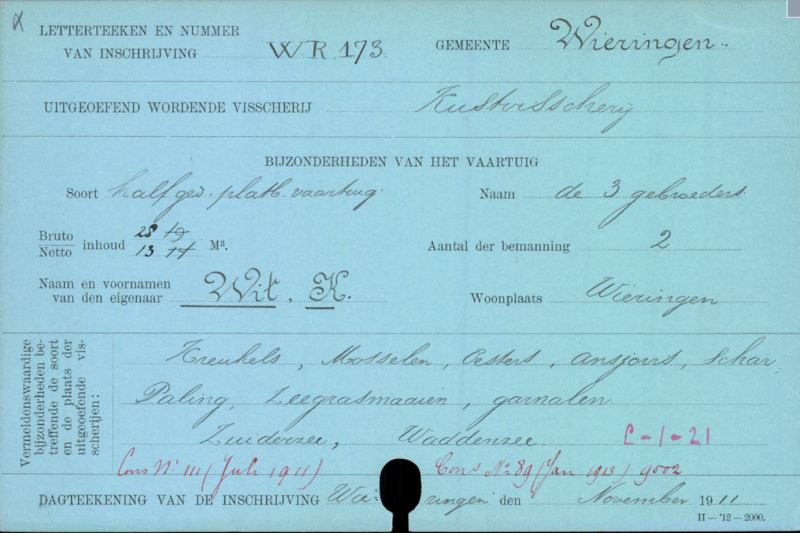 α
LETTERTEEKEN EN NUMMER
VAN INSCHRIJVING WR 173. GEMEENTE Wieringen.
UITGEOEFEND WORDENDE VISSCHERIJ Kustvisscherij
BIJZONDERHEDEN VAN HET VAARTUIG
Soort half ged. platb. vaartuig. Naam de 3 gebroeders.
Bruto 28 19
Netto inhoud 13 M³. Aantal der bemanning 2
Naam en voornamen
van den eigenaar Wit. K. Woonplaats Wieringen
Vermeldenswaardige
bijzonderheden be-
treffende de soort
en de plaats der
uitgeoefende vis-
scherijen:
Kreukels, Mosselen, Oesters, ansjovis, Schar,
Paling, Zeegrasmaaien, garnalen.
Zuiderzee, Waddenzee. C-1-21
Cons No 111 (Juli 1911) Cons No. 89 (Jan 1913) 9002
DAGTEEKENING VAN DE INSCHRIJVING Wieringen den November 1911
II—'12—2000.